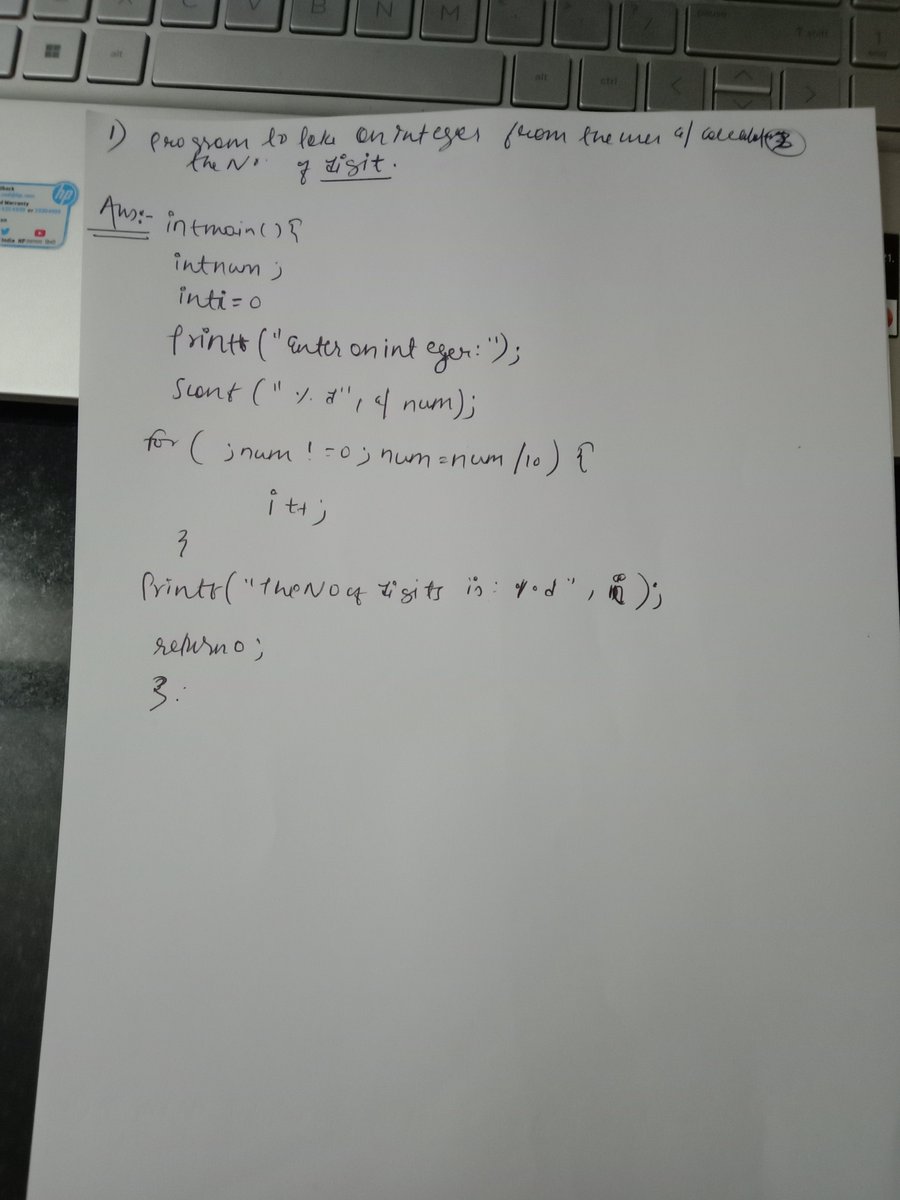 C V B N M
alt
alt ctrl < >
pause
? /
hp
1) Program to take an integer from the user & calculate
the No. of digit.
Ans:- int main() {
int num ;
int i = 0
Printf ("Enter an integer:");
Scanf (" % d", & num);
for ( ; num ! = 0 ; num = num /10 ) {
i ++ ;
}
Printf("The No of digits is : %d" , i );
return 0 ;
}